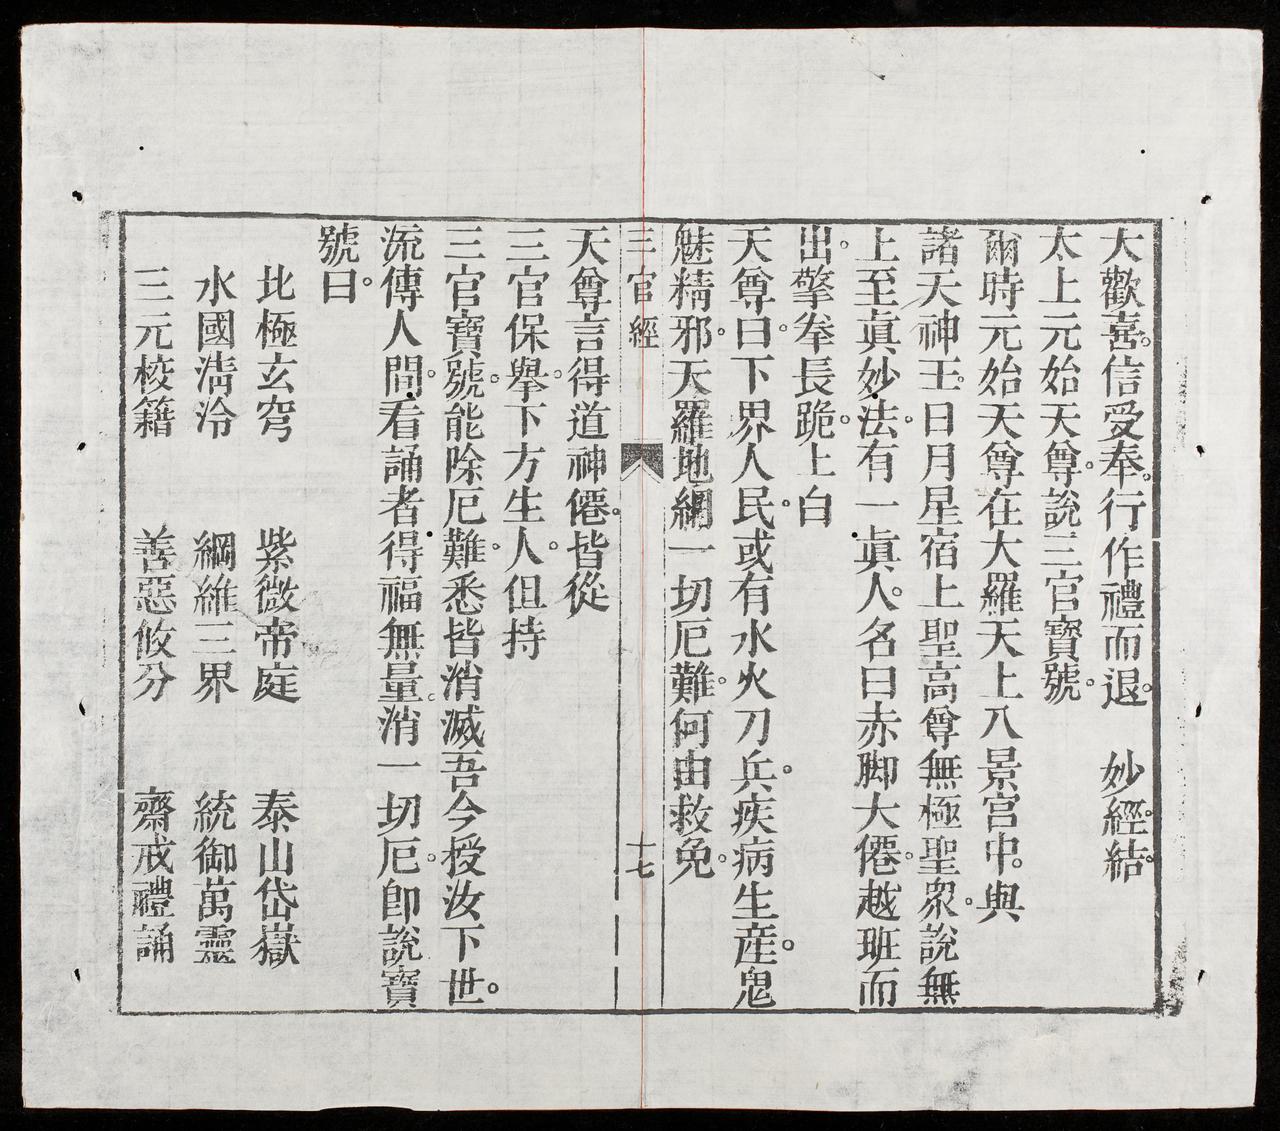 大歡喜。信受奉。行作禮而退。　妙經。結。
太上元始天尊。說三官寶號。
爾時元始天尊在大羅天上八景宮中。與
諸天神王。日月星宿上聖高尊無極聖眾。說無
上至眞妙法。有一眞人。名曰赤脚大僊。越班而
出。擎拳長跪。上白
天尊曰。下界人民。或有水火刀兵。疾病生産。鬼
魅精邪。天羅地網一切厄難。何由救免。
三官經　十七
天尊言得道神僊。皆從
三官保舉。下方生人。但持
三官寶號。能除厄難。悉皆消滅吾今授汝下世。
流傳人間。看誦者得福無量。消一切厄。卽說寶
號曰。
北極玄穹　紫微帝庭　泰山岱嶽
水國淸冷　綱維三界　統御萬靈
三元校籍　善惡攸分　齋戒禮誦